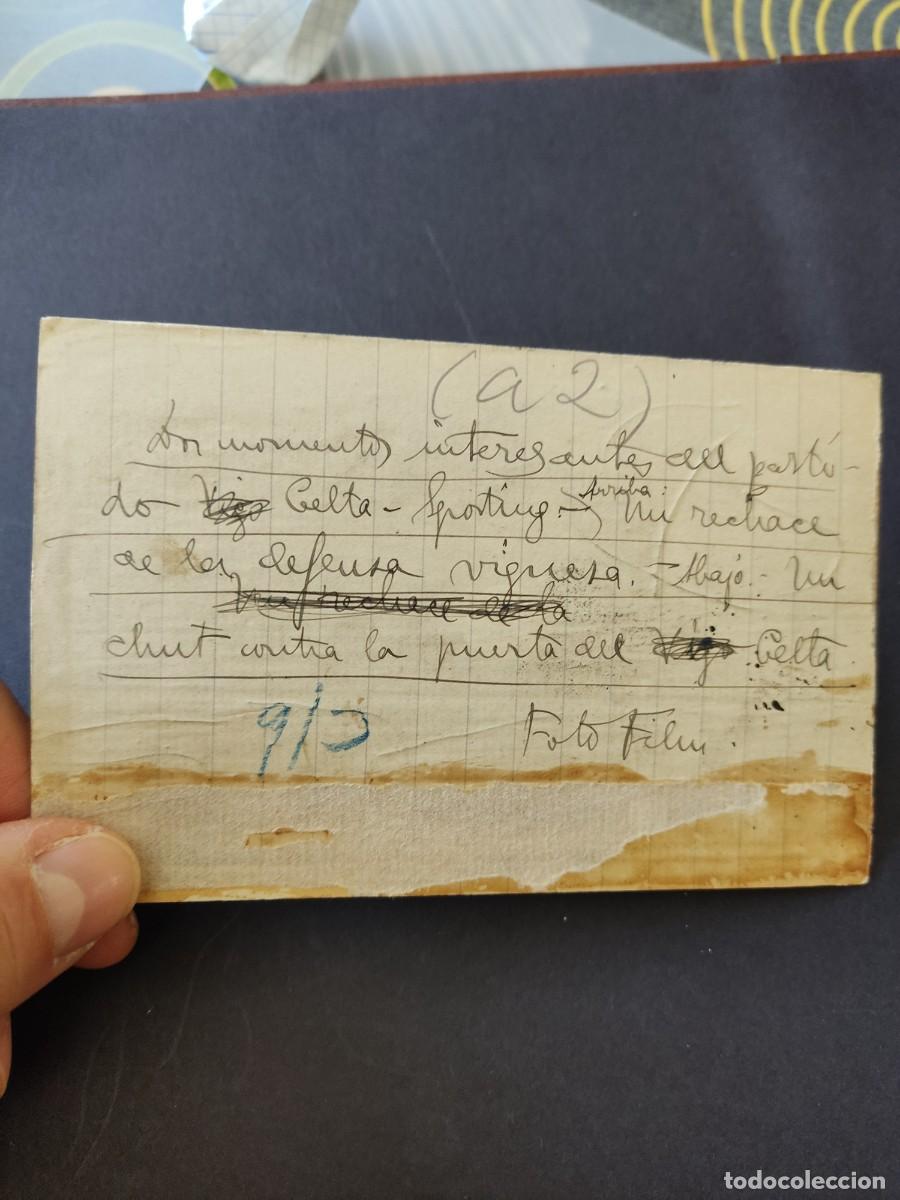 (a 2)
Dos momentos interesantes del parti-
do Vigo Celta - Sporting.- Arriba: Un rechace
de la defensa viguesa. - Abajo.- Un
Un rechace de la
chut contra la puerta del Vigo Celta.
9/3
Foto Film.
todocoleccion